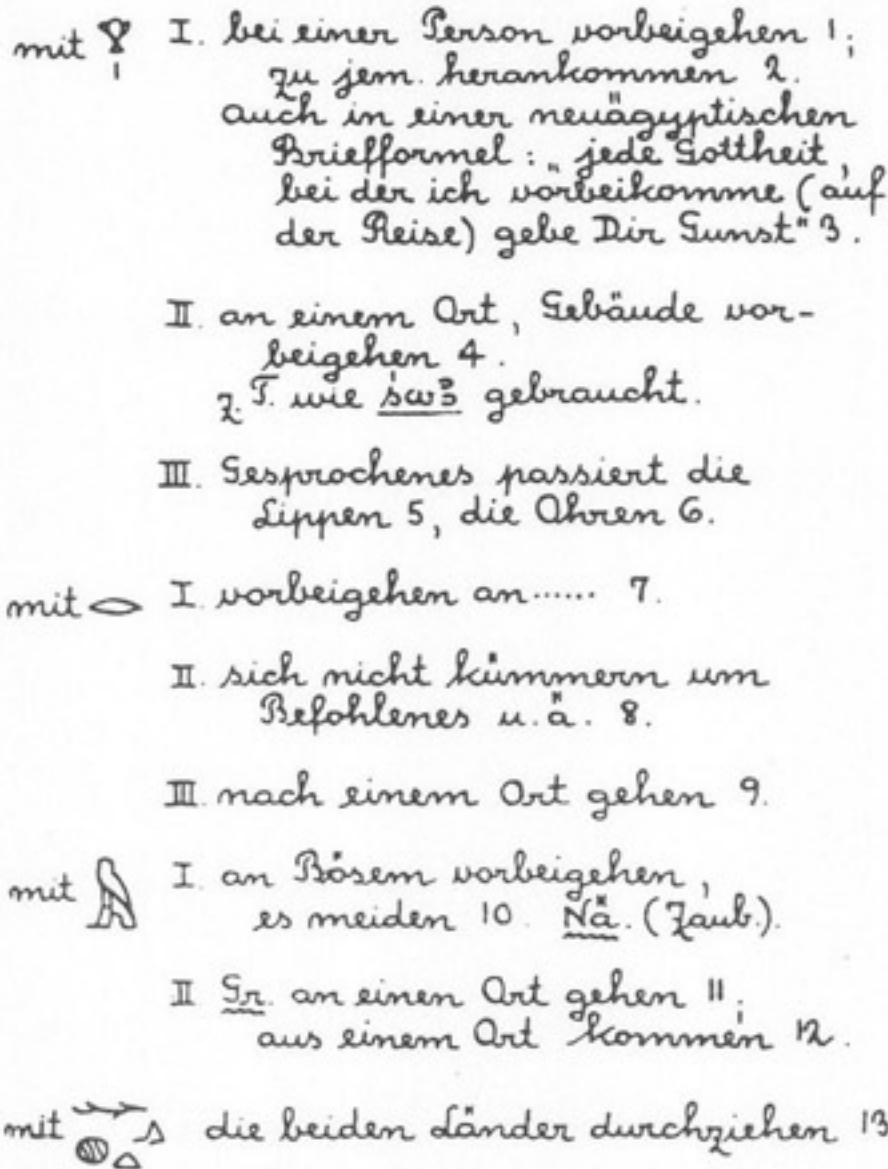 mit 𓁷𓏤 I. bei einer Person vorbeigehen 1;
zu jem. herankommen 2.
auch in einer neuägyptischen
Briefformel: „jede Gottheit,
bei der ich vorbeikomme (auf
der Reise) gebe Dir Gunst" 3.
II. an einem Ort, Gebäude vor-
beigehen 4.
z. T. wie śwꜣ gebraucht.
III. Gesprochenes passiert die
Lippen 5, die Ohren 6.
mit 𓂋 I. vorbeigehen an...... 7.
II. sich nicht kümmern um
Befohlenes u. ä. 8.
III. nach einem Ort gehen 9.
mit 𓅓 I. an Bösem vorbeigehen,
es meiden 10. Nä. (Zaub.).
II Gr. an einen Ort gehen 11;
aus einem Ort kommen 12.
mit die beiden Länder durchziehen 13